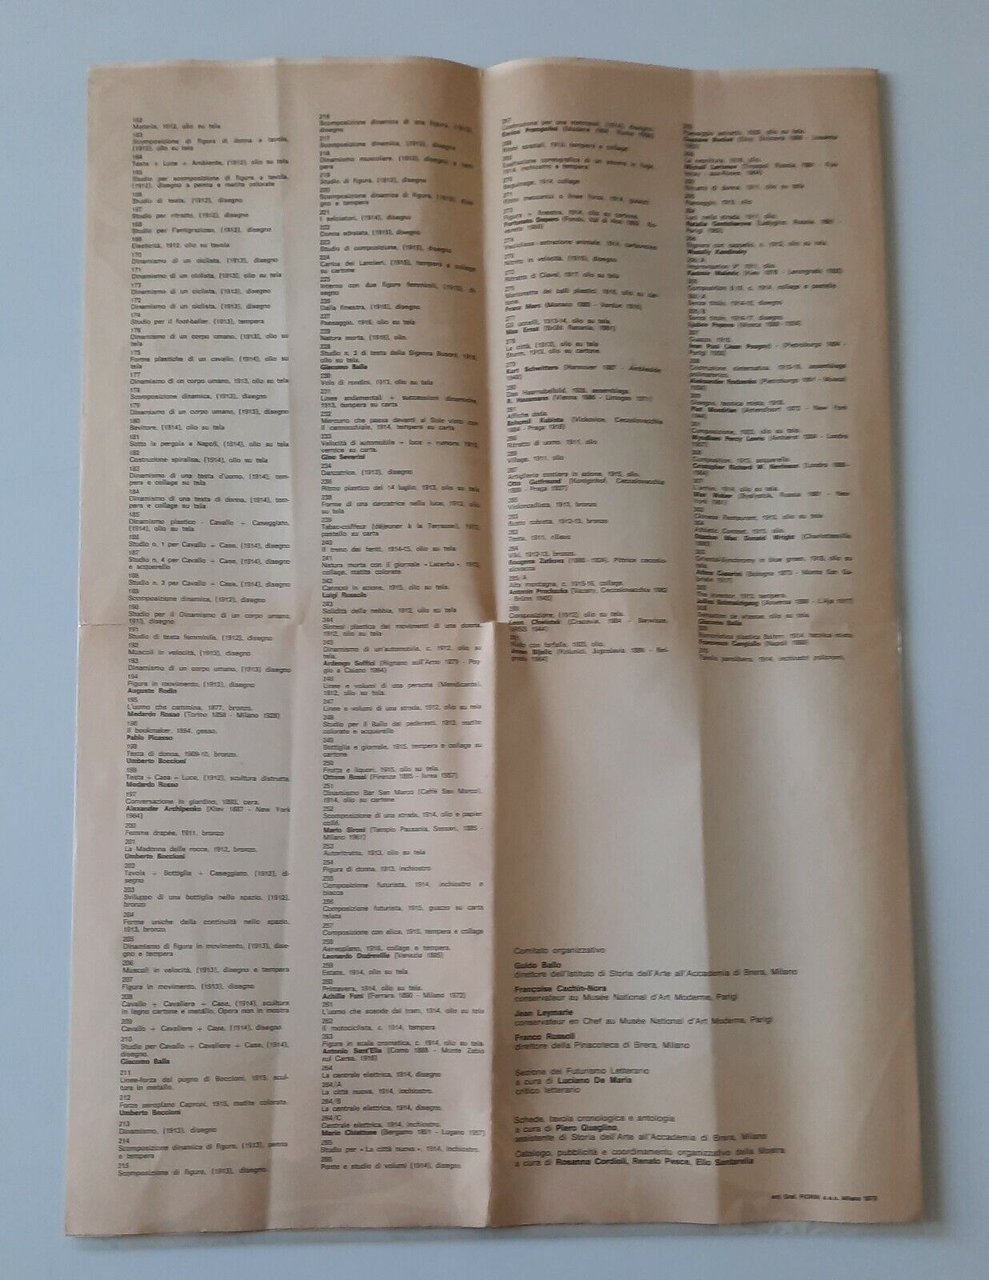 162
Materia, 1912, olio su tela
163
Scomposizione di figura di donna a tavola,
(1912), olio su tela
164
Testa + Luce + Ambiente, (1912), olio su tela
165
Studio per scomposizione di figura a tavola,
(1912), disegno a penna e matite colorate
166
Studio di testa, (1912), disegno
167
Studio per ritratto, (1912), disegno
168
Studio per l'antigrazioso, (1912), disegno
169
Elasticità, 1912, olio su tavola
170
Dinamismo di un ciclista, (1913), disegno
171
Dinamismo di un ciclista, (1913), olio su tela
172
Dinamismo di un ciclista, (1913), disegno
173
Dinamismo di un ciclista, (1913), disegno
174
Studio per il foot-baller, (1913), tempera
175
Dinamismo di un corpo umano, (1913), olio su
tela
176
Forme plastiche di un cavallo, (1914), olio su
tela
177
Dinamismo di un corpo umano, 1913, olio su tela
178
Scomposizione dinamica, (1913), disegno
179
Dinamismo di un corpo umano, (1913), disegno
180
Bevitore, (1914), olio su tela
181
Sotto la pergola a Napoli, (1914), olio su tela
182
Costruzione spiralica, (1914), olio su tela
183
Dinamismo di una testa d'uomo, (1914), tem-
pera e collage su tela
184
Dinamismo di una testa di donna, (1914), tem-
pera e collage su tela
185
Dinamismo plastico - Cavallo + Caseggiato,
(1914), olio su tela
186
Studio n. 1 per Cavallo + Case, (1914), disegno
187
Studio n. 4 per Cavallo + Case, (1914), disegno
e acquerello
188
Studio n. 3 per Cavallo + Case, (1914), disegno
189
Scomposizione dinamica, (1913), disegno
190
Studio per il Dinamismo di un corpo umano,
1913, disegno
191
Studio di testa femminile, (1912), disegno
192
Muscoli in velocità, (1913), disegno
193
Dinamismo di un corpo umano, (1913) disegno
194
Figura in movimento, (1913), disegno
Auguste Rodin
195
L'uomo che cammina, 1877, bronzo.
Medardo Rosso (Torino 1858 - Milano 1928)
196
Il bookmaker, 1894, gesso.
Pablo Picasso
198
Testa di donna, 1909-10, bronzo.
Umberto Boccioni
199
Testa + Casa + Luce, (1912), scultura distrutta
Medardo Rosso
197
Conversazione in giardino, 1893, cera.
Alexander Archipenko (Kiev 1887 - New York
1964)
200
Femme drapée, 1911, bronzo
201
La Madonna delle rocce, 1912, bronzo.
Umberto Boccioni
202
Tavola + Bottiglia + Caseggiato, (1912), di-
segno
203
Sviluppo di una bottiglia nello spazio, (1912),
bronzo
204
Forme uniche della continuità nello spazio,
1913, bronzo
205
Dinamismo di figura in movimento, (1913), dise-
gno e tempera
206
Muscoli in velocità, (1913), disegno e tempera
207
Figura in movimento, (1913), disegno
208
Cavallo + Cavaliere + Case, (1914), scultura
in legno cartone e metallo. Opera non in mostra
209
Cavallo + Cavaliere + Case, (1914), disegno
210
Studio per Cavallo + Cavaliere + Case, (1914),
disegno.
Giacomo Balla
211
Linee-forza del pugno di Boccioni, 1915, scul-
tura in metallo.
212
Forze aeroplano Caproni, 1915, matite colorate.
Umberto Boccioni
213
Dinamismo, (1913), disegno
214
Scomposizione dinamica di figura, (1913), penna
e tempera
215
Scomposizione di figura, (1913), disegno.
216
Scomposizione dinamica di una figura, (1913),
disegno
217
Scomposizione dinamica, (1913), disegno
218
Dinamismo muscolare, (1913), disegno a tem-
pera
219
Studio di figura, (1913), disegno
220
Scomposizione dinamica di figura, (1913), dise-
gno e tempera
221
I selciatori, (1914), disegno.
222
Donna sdraiata, (1913), disegno
223
Studio di composizione, (1913), disegno
224
Carica dei Lancieri, (1915), tempera e collage
su cartone
225
Interno con due figure femminili, (1915), di-
segno
226
Dalla finestra, (1915), disegno.
227
Paesaggio, 1916, olio su tela.
228
Natura morta, (1916), olio.
229
Studio n. 2 di testa della Signora Busoni, 1916,
olio su tela.
Giacomo Balla
230
Volo di rondini, 1913, olio su tela
231
Linee andamentali + successioni dinamiche,
1913, tempera su carta
232
Mercurio che passa davanti al Sole visto con
il cannocchiale, 1914, tempera su carta
233
Velocità di automobile + luce + rumore, 1913,
vernice su carta.
Gino Severini
234
Danzatrice, (1913), disegno
235
Ritmo plastico del 14 luglio, 1913, olio su tela
238
Forme di una danzatrice nella luce, 1913, olio
su tela
239
Tabac-coiffeur (déjeuner à la Terrasse), 1913,
pastello su carta
240
Il treno dei feriti, 1914-15, olio su tela
241
Natura morta con il giornale «Lacerba», 1913,
collage, matite colorate
242
Cannoni in azione, 1915, olio su tela.
Luigi Russolo
243
Solidità della nebbia, 1912, olio su tela
244
Sintesi plastica dei movimenti di una donna,
1912, olio su tela
245
Dinamismo di un'automobile, c. 1912, olio su
tela.
Ardengo Soffici (Rignano sull'Arno 1879 - Pog-
gio a Caiano 1964)
246
Linee e volumi di una persona (Mendicante),
1912, olio su tela.
247
Linee e volumi di una strada, 1912, olio su tela
248
Studio per il Ballo dei pederasti, 1913, matite
colorate e acquerello
249
Bottiglia e giornale, 1915, tempera e collage su
cartone
250
Frutta e liquori, 1915, olio su tela.
Ottone Rosai (Firenze 1895 - Ivrea 1957)
251
Dinamismo Bar San Marco (Caffè San Marco),
1914, olio su cartone
252
Scomposizione di una strada, 1914, olio e papier
collé.
Mario Sironi (Tempio Pausania, Sassari, 1885 -
Milano 1961)
253
Autoritratto, 1913, olio su tela
254
Figura di donna, 1913, inchiostro
255
Composizione futurista, 1914, inchiostro e
biacca
256
Composizione futurista, 1915, guazzo su carta
telata
257
Composizione con elica, 1915, tempera e collage
258
Aereoplano, 1916, collage e tempera.
Leonardo Dudreville (Venezia 1885)
259
Estate, 1914, olio su tela
260
Primavera, 1914, olio su tela.
Achille Funi (Ferrara 1890 - Milano 1972)
261
L'uomo che scende dal tram, 1914, olio su tela
262
Il motociclista, c. 1914, tempera
263
Figura in scala cromatica, c. 1914, olio su tela.
Antonio Sant'Elia (Como 1888 - Monte Zebio
sul Carso, 1916)
264
La centrale elettrica, 1914, disegno
264/A
La città nuova, 1914, inchiostro.
264/B
La centrale elettrica, 1914, disegno.
264/C
Centrale elettrica, 1914, inchiostro.
Mario Chiattone (Bergamo 1891 - Lugano 1957)
265
Studio per «La città nuova», 1914, inchiostro.
266
Ponte e studio di volumi (1914), disegno
267
Costruzione per una stampa, (1914), disegno.
Enrico Prampolini (Modena 1894 - Roma 1956)
268
Ritmi spaziali, 1913, tempera e collage
269
1914, inchiostro e tempera
270
Béguinage, 1914, collage
271
Ritmi meccanici e linee forza, 1914, guazzo
272
Figura + finestra, 1914, olio su cartone.
Fortunato Depero (Fondo, Val di Non 1892 - Ro-
vereto 1960)
274
1914, carboncino
Ritratto in velocità, (1915), disegno
Ritratto di Clavel, 1917, olio su tela
Marionette dei balli plastici 1918, olio su car-
tone.
Franz Marc (Monaco 1880 - Verdun 1916)
277
Gli uccelli, 1913-14, olio su tela.
Max Ernst (Brühl Renania, 1891)
278
La città, (1913), olio su tela
Sturm, 1913, olio su cartone.
279
Kurt Schwitters (Hannover 1887 - Ambleside
1948)
280
Das Haarnabelbild, 1920, assemblage.
R. Hausmann (Vienna 1886 - Limoges 1971)
281
Affiche dada.
Bohumil Kubista (Vlckovice, Cecoslovacchia
1884 - Praga 1918)
Ritratto di uomo, 1911, olio
Village, 1911, olio
Artiglieria costiera in azione, 1915, olio.
Otto Gutfreund (Königinhof, Cecoslovacchia
1889 - Praga 1927)
Violoncellista, 1913, bronzo
Busto cubista, 1912-13, bronzo
Testa, 1911, rilievo
Viki, 1912-13, bronzo.
Rougena Zatkova (1885 - 1924), Pittrice cecoslo-
slovacca
Alta montagna, c. 1915-16, collage.
Antonin Prochazka (Vazany, Cecoslovacchia 1882
- Brünn 1945)
Composizione, (1912), olio su tela.
Leon Chwistek (Cracovia, 1884 - Barwicha,
URSS, 1944)
Nudo con farfalla, 1920, olio.
Jovan Bijelic (Kolunici, Jugoslavia 1886 - Bel-
grado 1964)
Paesaggio astratto, 1920, olio su tela.
La capellluta, 1916, olio.
Michail Larionov (Tiraspol, Russia, 1881 - Fon-
tenay - aux-Roses, 1964)
Ritratto di donna, 1911, olio su tela
Paesaggio, 1913, olio
Luci nella strada, 1911, olio.
Natalia Gontcharova (Ladygino, Russia, 1881 -
Parigi 1962)
Signora con cappello, c. 1912, olio su tela.
Wassily Kandinsky
Improvvisation 9° 1911, olio.
Kasimir Malevic (Kiev 1878 - Leningrado 1935)
Composition 8:10, c. 1914, collage e pastello
Senza titolo, 1914-15, disegno
Senza titolo, 1916-17, disegno.
Ljubov Popova (Mosca 1889 - 1924)
Guazzo, 1916.
Jean Pani (Jean Pougny) - (Pietroburgo 1894 -
Parigi 1956)
Costruzione sistematica, 1915-16, assemblage
polimaterico.
Aleksander Rodcenko (Pietroburgo 1891 - Mosca
1956)
Disegno, tecnica mista, 1916.
Piet Mondrian (Amersfoort 1872 - New York
1944)
Composizione, 1922, olio su tela.
Wyndham Percy Lewis (Amherst 1884 - Londra
1957)
Composizione, 1915, acquarello.
Cristopher Richard W. Nevinson (Londra 1889-
1946)
L'arrivo, 1914, olio su tela.
Max Weber (Byalystok, Russia 1881 - New
York 1961)
Chinese Restaurant, 1915, olio su tela
Athletic Contest, 1915, olio.
Stanton Mac Donald Wright (Charlottesville
1890)
Oriental-Synchromy in blue green, 1918, olio su
tela.
Athos Casarini (Bologna 1873 - Monte San Ga-
briele 1917)
The investor, 1912, tempera.
Julius Schmalzigaug (Anversa 1886 - L'Aja 1917)
Sensation de vitesse, olio su tela.
Giannina Balla
Francesco Cangiullo (Napoli 1888)
Tavole parolibere, 1914, inchiostri policromi.
Comitato organizzativo
Guido Ballo
direttore dell'Istituto di Storia dell'Arte all'Accademia di Brera, Milano
Françoise Cachin-Nora
conservateur au Musée National d'Art Moderne, Parigi
Jean Leymarie
conservateur en Chef au Musée National d'Art Moderne, Parigi
Franco Russoli
direttore della Pinacoteca di Brera, Milano
Sezione del Futurismo Letterario
a cura di Luciano De Maria
critico letterario
Schede, tavola cronologica e antologia
a cura di Piero Quaglino,
assistente di Storia dell'Arte all'Accademia di Brera, Milano
Catalogo, pubblicità e coordinamento organizzativo della Mostra
a cura di Rosanna Cordioli, Renato Pesce, Elio Santarella
Milano 1973